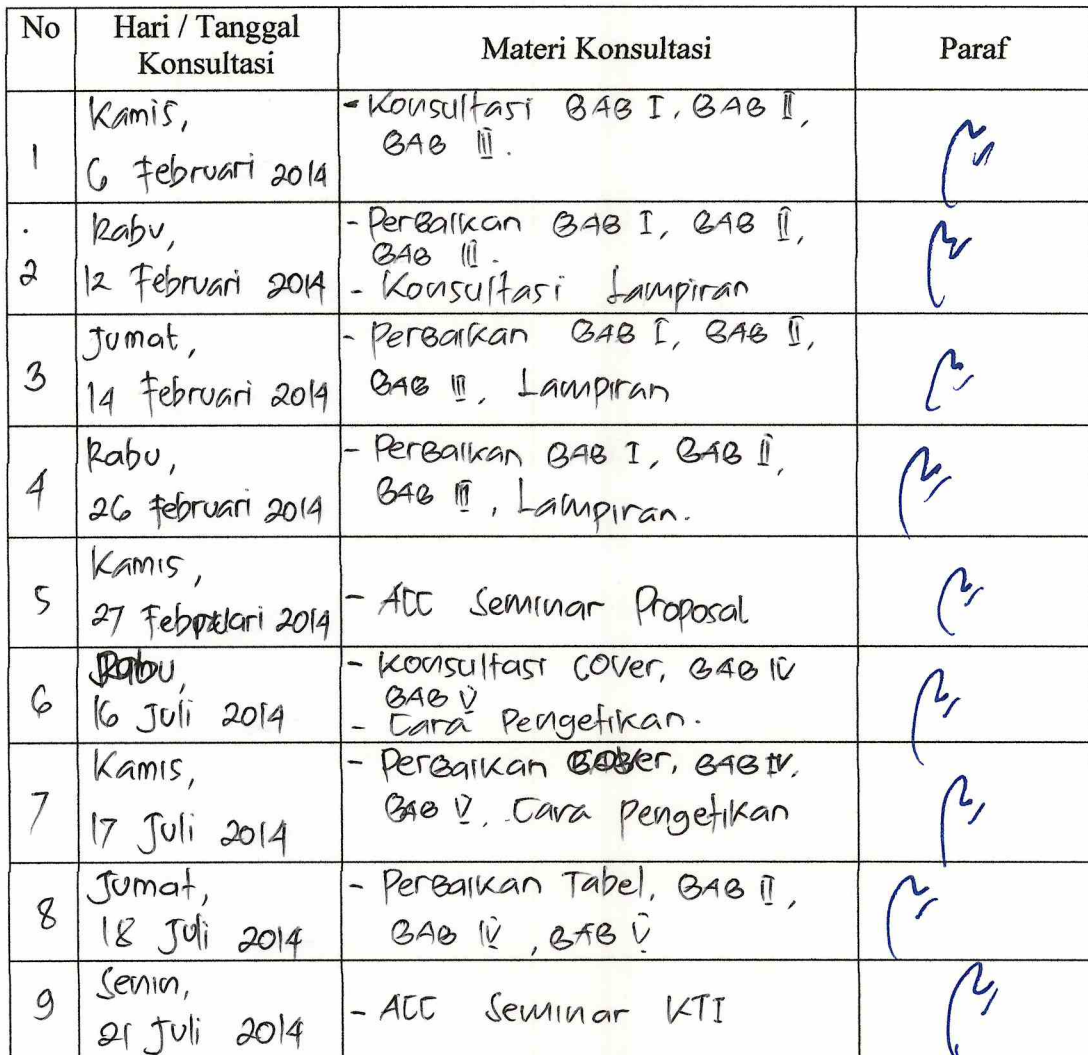 No
Hari / Tanggal
Konsultasi
Materi Konsultasi
Paraf
1
Kamis,
6 Februari 2014
- Konsultasi BAB I, BAB II,
BAB III.
2
Rabu,
12 Februari 2014
- Perbaikan BAB I, BAB II,
BAB III.
- Konsultasi Lampiran
3
Jumat,
14 Februari 2014
- Perbaikan BAB I, BAB II,
BAB III, Lampiran
4
Rabu,
26 Februari 2014
- Perbaikan BAB I, BAB II,
BAB III, Lampiran.
5
Kamis,
27 Februari 2014
- ACC Seminar Proposal
6
Rabu,
16 Juli 2014
- Konsultasi cover, BAB IV
BAB V
- Cara Pengetikan.
7
Kamis,
17 Juli 2014
- Perbaikan cover, BAB IV,
BAB V, Cara Pengetikan
8
Jumat,
18 Juli 2014
- Perbaikan Tabel, BAB II,
BAB IV, BAB V
9
Senin,
21 Juli 2014
- ACC Seminar KTI